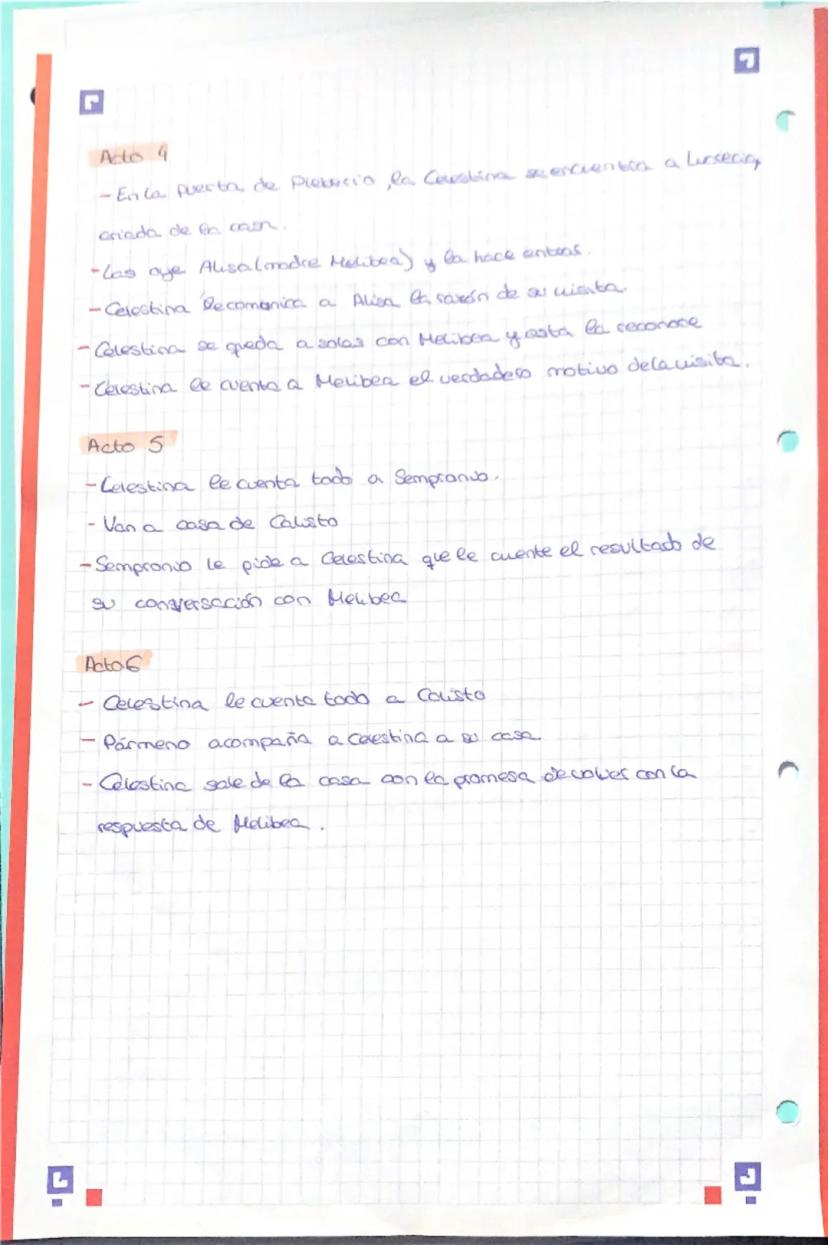 Acto 4
- En la puerta de Pleberio, la Celestina se encuentra a Lucrecia,
criada de la casa.
- Las oye Alisa (madre Melibea) y la hace entrar.
- Celestina le comunica a Alisa la razón de su visita.
- Celestina se queda a solas con Melibea y esta la reconoce
- Celestina le cuenta a Melibea el verdadero motivo de la visita.
Acto 5
- Celestina le cuenta todo a Sempronio.
- Van a casa de Calisto
- Sempronio le pide a Celestina que le cuente el resultado de
su conversación con Melibea
Acto 6
- Celestina le cuenta todo a Calisto
- Pármeno acompaña a Celestina a su casa
- Celestina sale de la casa con la promesa de volver con la
respuesta de Melibea.